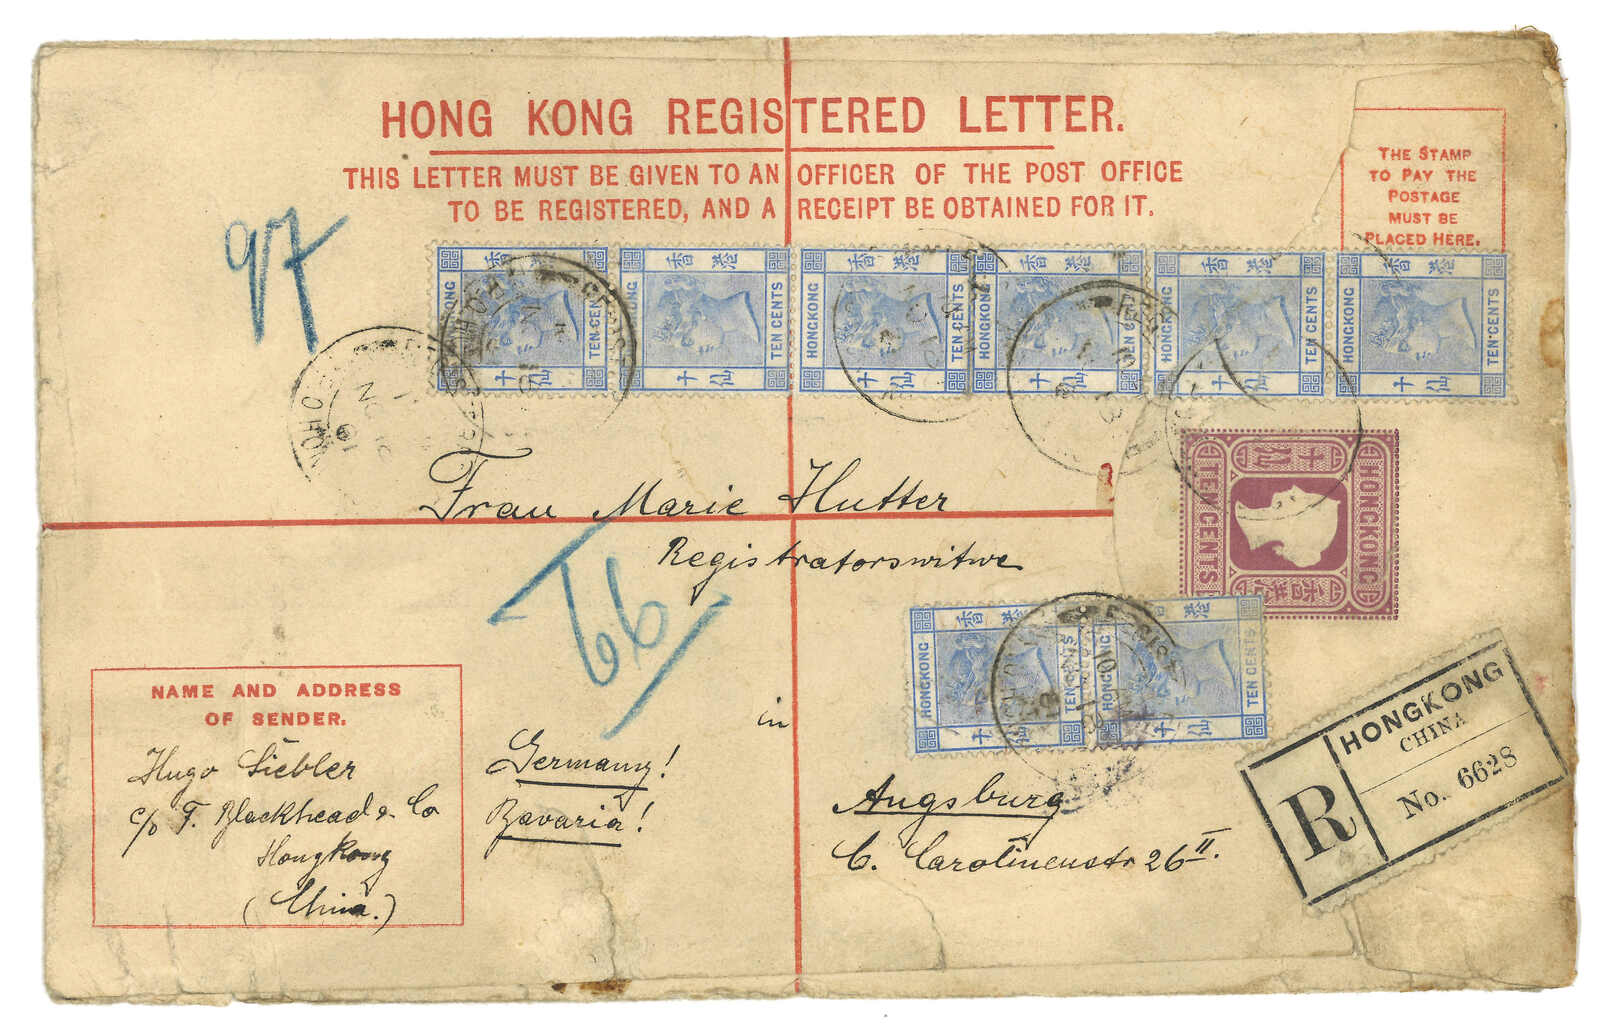 HONG KONG REGISTERED LETTER.
THIS LETTER MUST BE GIVEN TO AN OFFICER OF THE POST OFFICE
TO BE REGISTERED, AND A RECEIPT BE OBTAINED FOR IT.
THE STAMP
TO PAY THE
POSTAGE
MUST BE
PLACED HERE.
97
香港
HONGKONG
TEN CENTS
十仙
香港
HONGKONG
TEN CENTS
十仙
香港
HONGKONG
TEN CENTS
十仙
香港
HONGKONG
TEN CENTS
十仙
香港
HONGKONG
TEN CENTS
十仙
香港
HONGKONG
TEN CENTS
十仙
HONGKONG
TEN CENTS
香港
十仙
Frau Marie Hutter
Registratorswitwe
66
香港
HONGKONG
TEN CENTS
十仙
香港
HONGKONG
TEN CENTS
十仙
in
Augsburg
C. Carolinenstr 26 II.
Germany!
Bavaria!
NAME AND ADDRESS
OF SENDER.
Hugo Siebler
c/o F. Blackhead & Co
Hongkong
(China.)
R
HONGKONG
CHINA
No. 6628